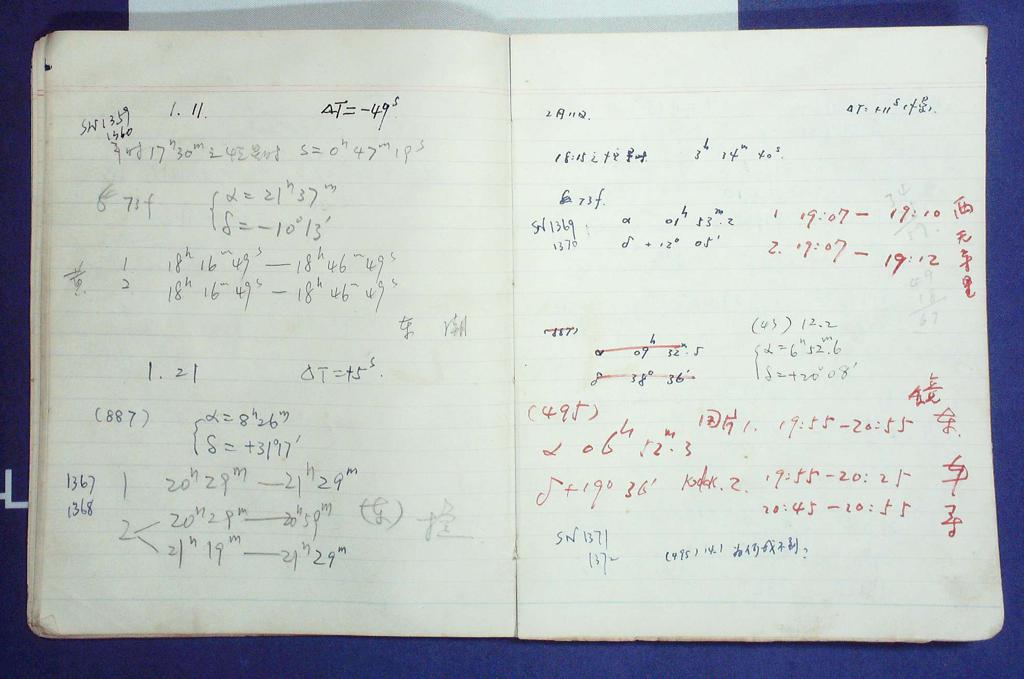 SN 1359
1360
1.11.
ΔT=-49ˢ
平时17ʰ30ᵐ之恒星时 S=0ʰ47ᵐ19ˢ
73f
{α=21ʰ37ᵐ
δ=-10°13′
黄 1 18ʰ16ᵐ49ˢ—18ʰ46ᵐ49ˢ
2 18ʰ16ᵐ49ˢ—18ʰ46ᵐ49ˢ
东 湖
1.21 ΔT=+5ˢ.
(887) {α=8ʰ26ᵐ
δ=+31°17′
1367 1 20ʰ29ᵐ—21ʰ29ᵐ
1368
2 < 20ʰ29ᵐ—20ʰ59ᵐ (东)
21ʰ19ᵐ—21ʰ29ᵐ
2月11日. ΔT=+11ˢ
18:15之恒星时 3ʰ 34ᵐ 40ˢ.
73f.
SN1369 α 01ʰ 53ᵐ.2
1370 δ +12° 05′
1. 19:07— 19:10
2. 19:07— 19:12
(887)
α 09ʰ 32ᵐ.5
δ 38° 36′
(43) 12.2
{α=6ʰ52ᵐ.6
δ=+20°08′
(495)
α 06ʰ 52ᵐ.3
δ+19° 36′
1. 19:55—20:55
Kodak.2. 19:55—20:25
20:45—20:55
镜
东
SN1371
1372
(495) 14.1 为何找不到?